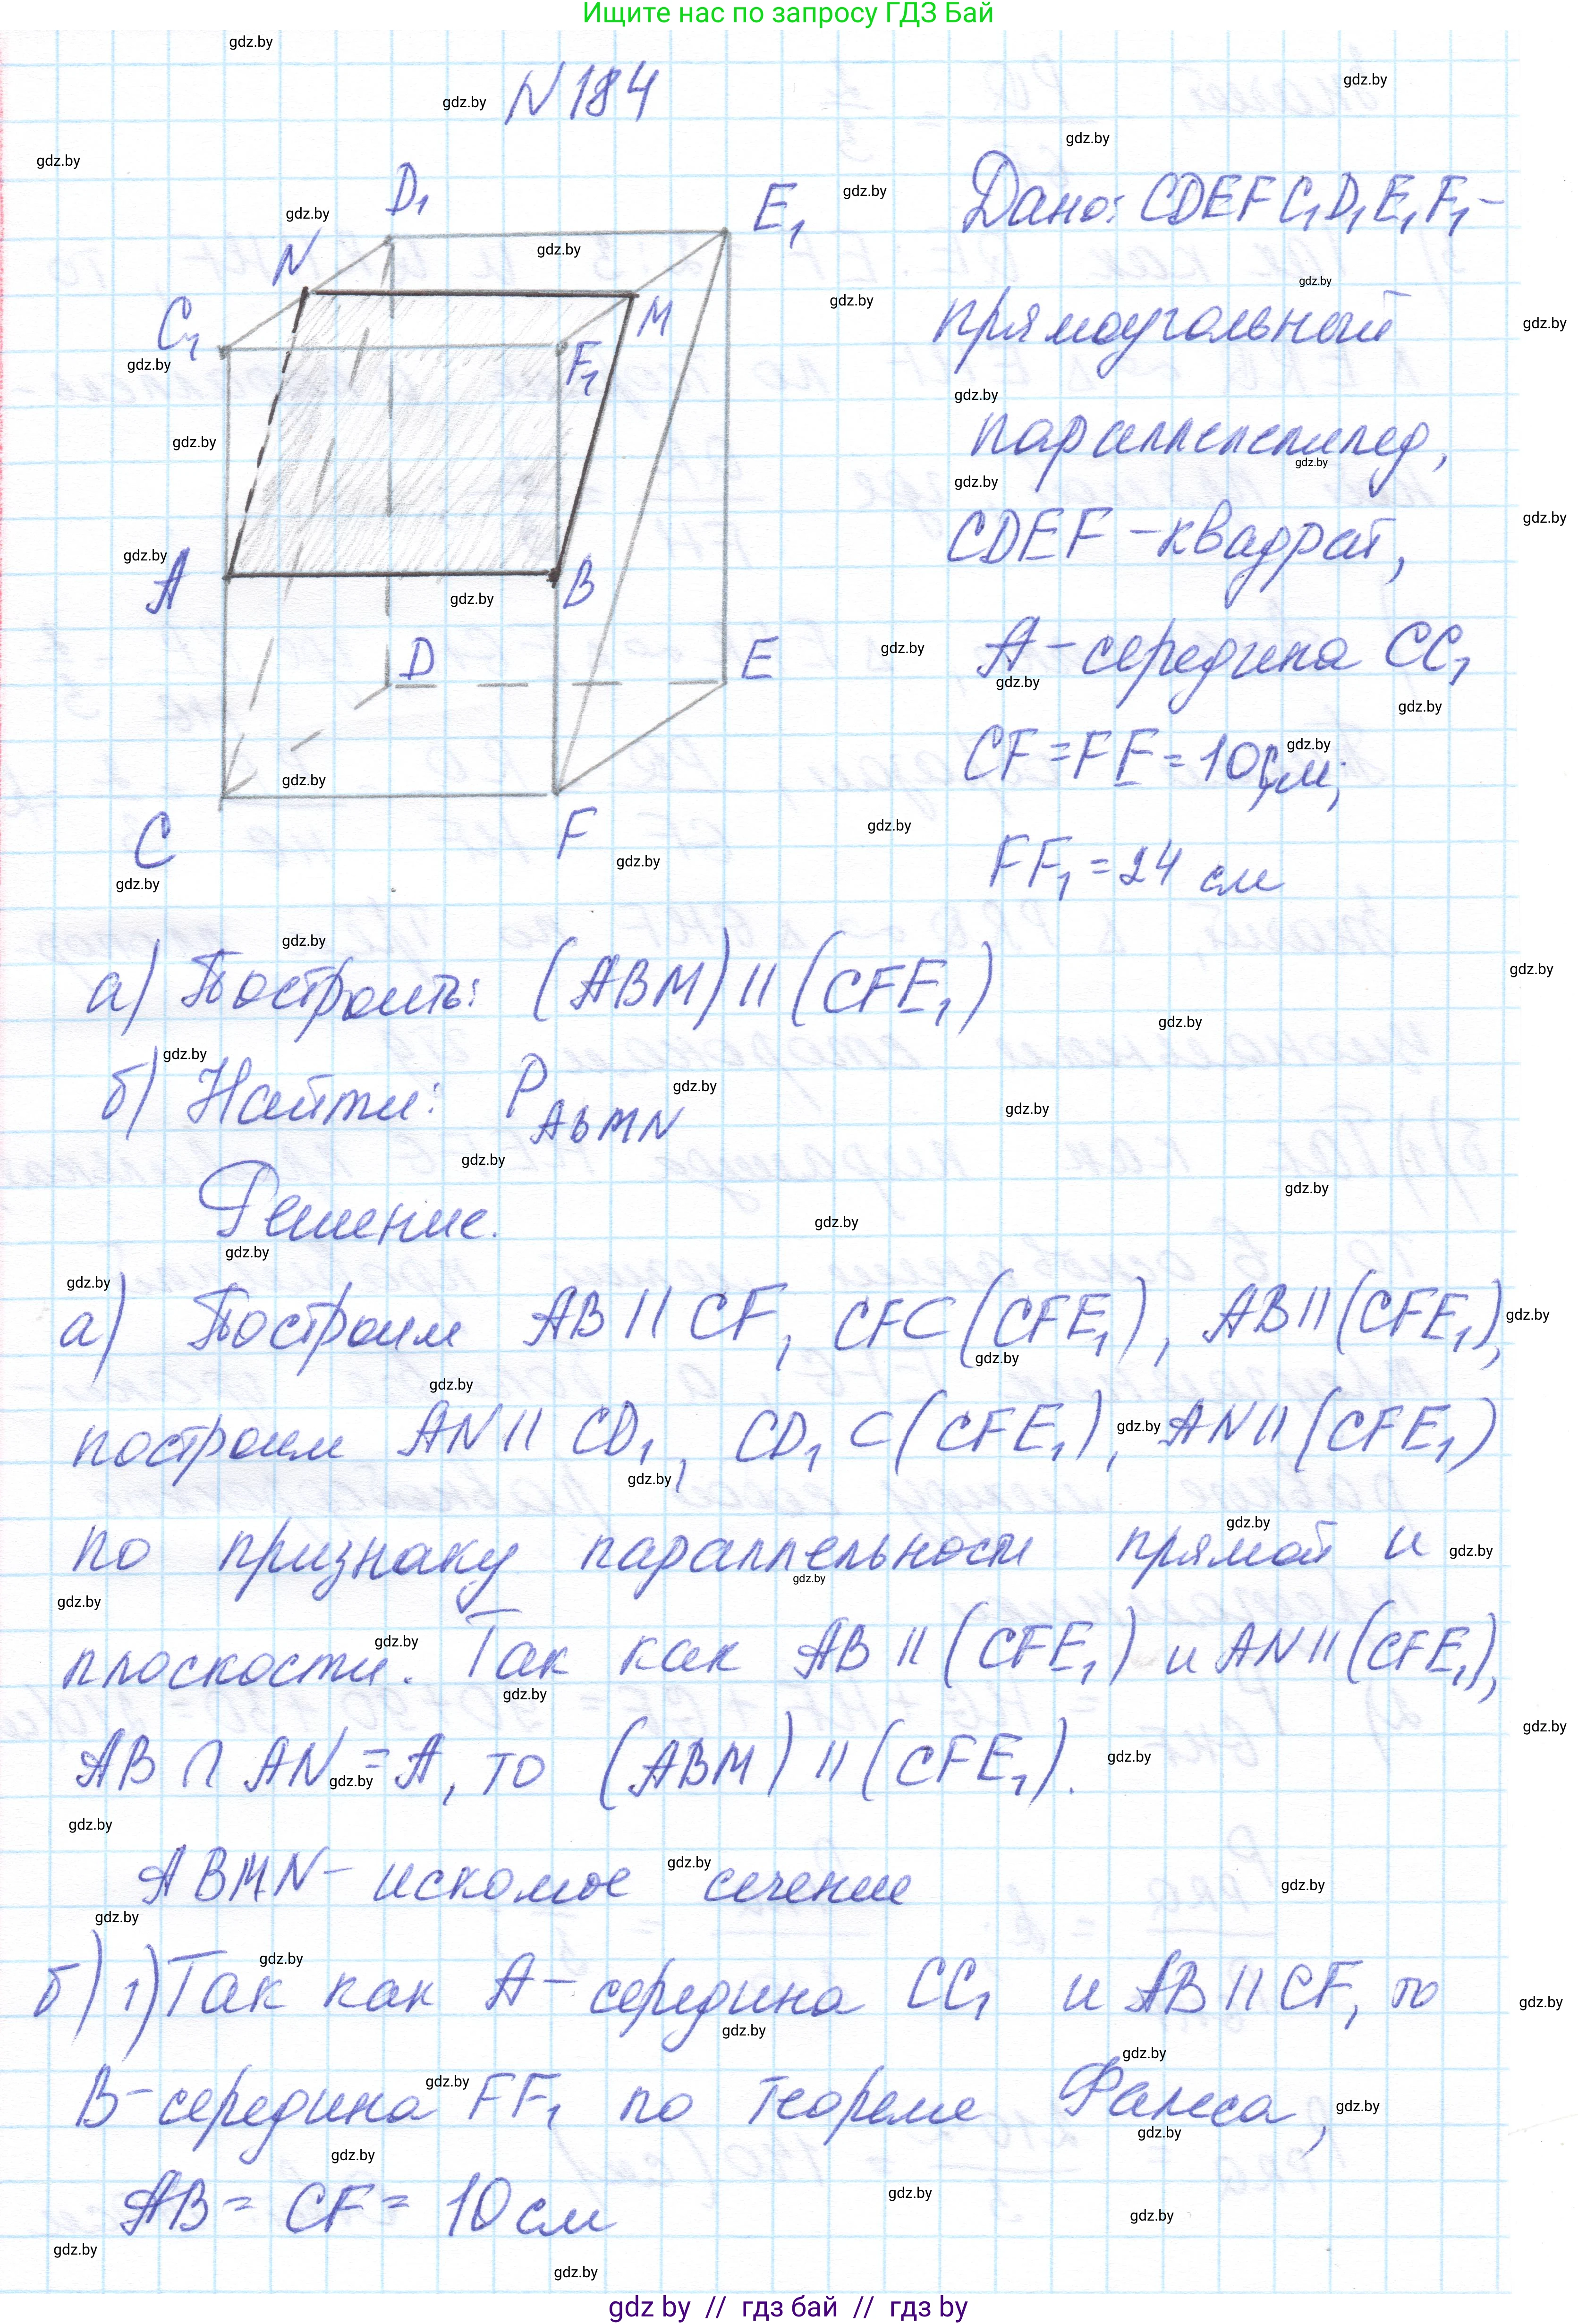 Ищите нас по запросу ГДЗ Бай
N 184
D₁
E₁
N
C₁
M
F₁
A
B
D
E
C
F
Дано: CDEFC₁D₁E₁F₁ -
прямоугольный
параллелепипед,
CDEF - квадрат,
A - середина CC₁
CF = FE = 10 см;
FF₁ = 24 см
а) Построить: (ABM) || (CFE₁)
б) Найти: P ABMN
Решение.
а) Построим AB || CF, CF ⊂ (CFE₁), AB || (CFE₁),
построим AN || CD₁, CD₁ ⊂ (CFE₁), AN || (CFE₁)
по признаку параллельности прямой и
плоскости. Так как AB || (CFE₁) и AN || (CFE₁),
AB ∩ AN = A, то (ABM) || (CFE₁).
ABMN - искомое сечение
б) 1) Так как A - середина CC₁ и AB || CF, то
B - середина FF₁ по теореме Фалеса,
AB = CF = 10 см
gdz by // гдз бай // гдз by